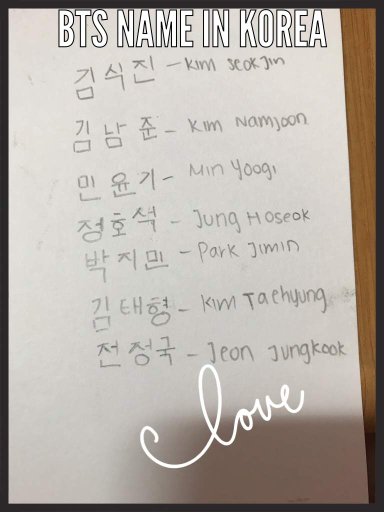 BTS NAME IN KOREA
김식진 - Kim Seokjin
김남준 - Kim Namjoon
민윤기 - Min Yoogi
정호석 - Jung Hoseok
박지민 - Park Jimin
김태형 - Kim Taehyung
전정국 - Jeon Jungkook
Love